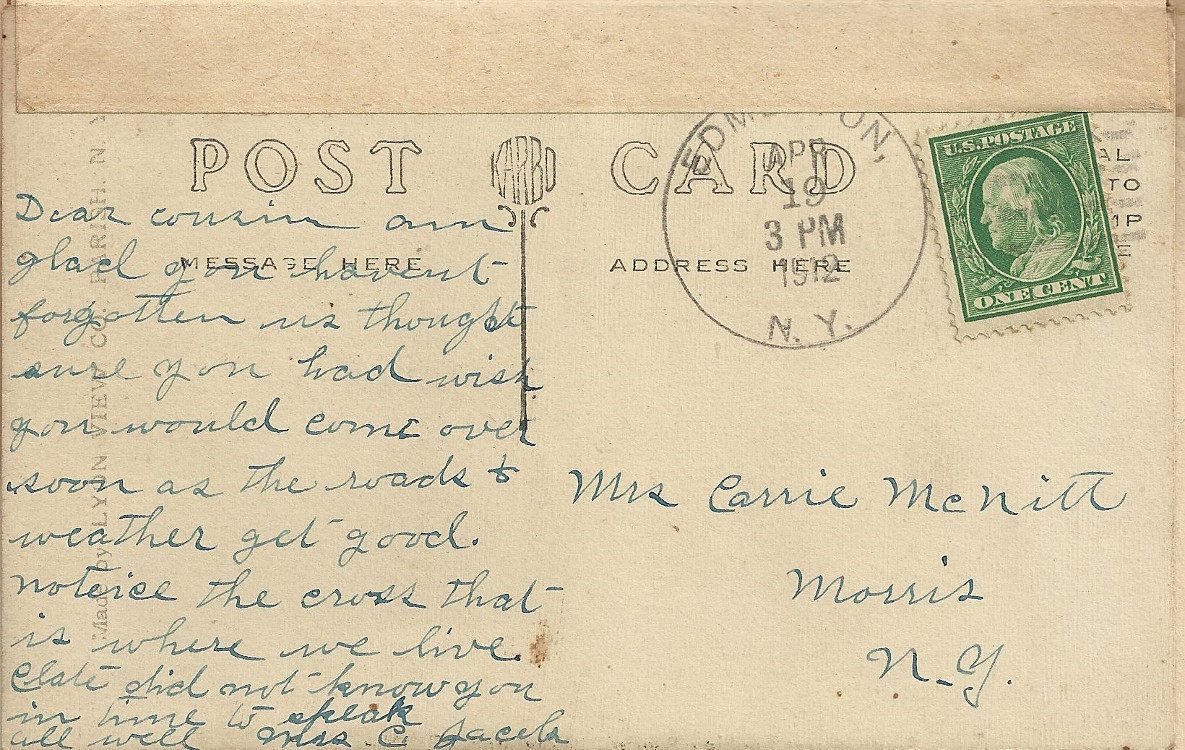 POST CARD
KARBO
MESSAGE HERE
ADDRESS HERE
Made by LYON VIEW CO. PARISH. N. Y.
EDM TON,
APR
19
3 PM
1912
N. Y.
U.S. POSTAGE
ONE CENT
AL
TO
MP
E
Dear cousin am
glad you havent
forgotten us thought
sure you had wish
you would come over
soon as the roads &
weather get good.
noteice the cross that
is where we live.
Clate did not know you
in time to speak
all well Mrs C. Jacobs
Mrs Carrie McNitt
Morris
N-Y.